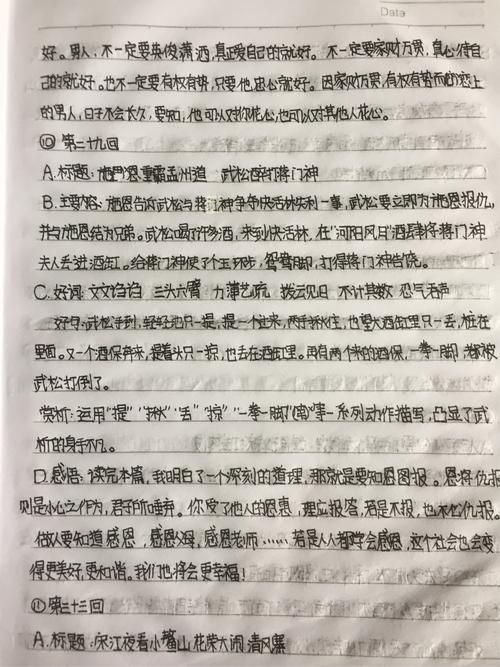 Date
好。男人，不一定要英俊潇洒，真正爱自己的就好。不一定要家财万贯，真心待自
己的就好。也不一定要有权有势，只要他忠心就好。因家财万贯，有权有势而恋上
的男人，日子不会长久，要知，他可以对你花心，也可以对其他人花心。
⑩ 第二十九回
A.标题：施恩重霸孟州道 武松醉打蒋门神
B.主要内容：施恩告诉武松与蒋门神争夺快活林失利一事，武松要立即为施恩报仇，
并与施恩结为兄弟。武松喝了许多酒，来到快活林，在"河阳风月"酒店将蒋门神
夫人丢进酒缸。给蒋门神使了个玉环步，鸳鸯脚，打得蒋门神告饶。
C.好词：文文诌诌 三头六臂 力薄艺疏 拨云见日 不计其数 忍气吞声
好句：武松手到，轻轻地只一提，提一个过来，两手揪住，也望大酒缸里只一丢，桩在
里面。又一个酒保奔来，提着头只一掠，也丢在酒缸里。再有两个来的酒保，一拳一脚都被
武松打倒了。
赏析：运用"提""揪""丢""掠""一拳一脚"等一系列动作描写，凸显了武
松的身手不凡。
D.感悟：读完本篇，我明白了一个深刻的道理，那就是要知恩图报。恩将仇报
则是小心之作为，君子所唾弃。你受了他人的恩惠，理应报答，若是不报，也不化仇报。
做人要知道感恩，感恩父母，感恩老师……若是人人都学会感恩，这个社会也会变
得更美好，更和谐。我们也将会更幸福！
⑪ 第三十三回
A.标题：宋江夜看小鳌山 花荣大闹清风寨